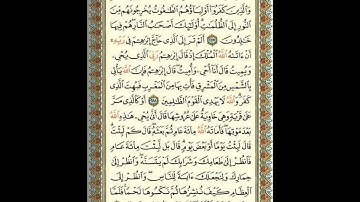 وَٱلَّذِينَ كَفَرُوٓاْ أَوۡلِيَآؤُهُمُ ٱلطَّٰغُوتُ يُخۡرِجُونَهُم مِّنَ
ٱلنُّورِ إِلَى ٱلظُّلُمَٰتِۗ أُوْلَٰٓئِكَ أَصۡحَٰبُ ٱلنَّارِۖ هُمۡ فِيهَا
خَٰلِدُونَ ٢٥٧ أَلَمۡ تَرَ إِلَى ٱلَّذِي حَآجَّ إِبۡرَٰهِـۧمَ فِي رَبِّهِۦٓ
أَنۡ ءَاتَىٰهُ ٱللَّهُ ٱلۡمُلۡكَ إِذۡ قَالَ إِبۡرَٰهِـۧمُ رَبِّيَ ٱلَّذِي يُحۡيِۦ
وَيُمِيتُ قَالَ أَنَا۠ أُحۡيِۦ وَأُمِيتُۖ قَالَ إِبۡرَٰهِـۧمُ فَإِنَّ ٱللَّهَ يَأۡتِي
بِٱلشَّمۡسِ مِنَ ٱلۡمَشۡرِقِ فَأۡتِ بِهَا مِنَ ٱلۡمَغۡرِبِ فَبُهِتَ ٱلَّذِي
كَفَرَۗ وَٱللَّهُ لَا يَهۡدِي ٱلۡقَوۡمَ ٱلظَّٰلِمِينَ ٢٥٨ أَوۡ كَٱلَّذِي مَرَّ
عَلَىٰ قَرۡيَةٖ وَهِيَ خَاوِيَةٌ عَلَىٰ عُرُوشِهَا قَالَ أَنَّىٰ يُحۡيِۦ هَٰذِهِ ٱللَّهُ
بَعۡدَ مَوۡتِهَاۖ فَأَمَاتَهُ ٱللَّهُ مِاْئَةَ عَامٖ ثُمَّ بَعَثَهُۥۖ قَالَ كَمۡ لَبِثۡتَۖ
قَالَ لَبِثۡتُ يَوۡمًا أَوۡ بَعۡضَ يَوۡمٖۖ قَالَ بَل لَّبِثۡتَ مِاْئَةَ عَامٖ
فَٱنظُرۡ إِلَىٰ طَعَامِكَ وَشَرَابِكَ لَمۡ يَتَسَنَّهۡۖ وَٱنظُرۡ إِلَىٰ
حِمَارِكَ وَلِنَجۡعَلَكَ ءَايَةٗ لِّلنَّاسِۖ وَٱنظُرۡ إِلَى
ٱلۡعِظَامِ كَيۡفَ نُنشِزُهَا ثُمَّ نَكۡسُوهَا لَحۡمٗاۚ فَلَمَّا